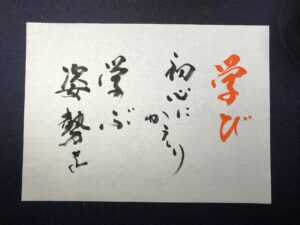 学び
初心に
かえり
学ぶ
姿勢を